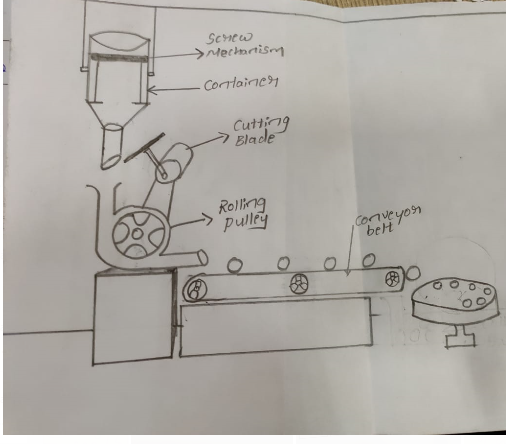 Screw
Mechanism
Container
Cutting
Blade
Rolling
pulley
conveyor
belt